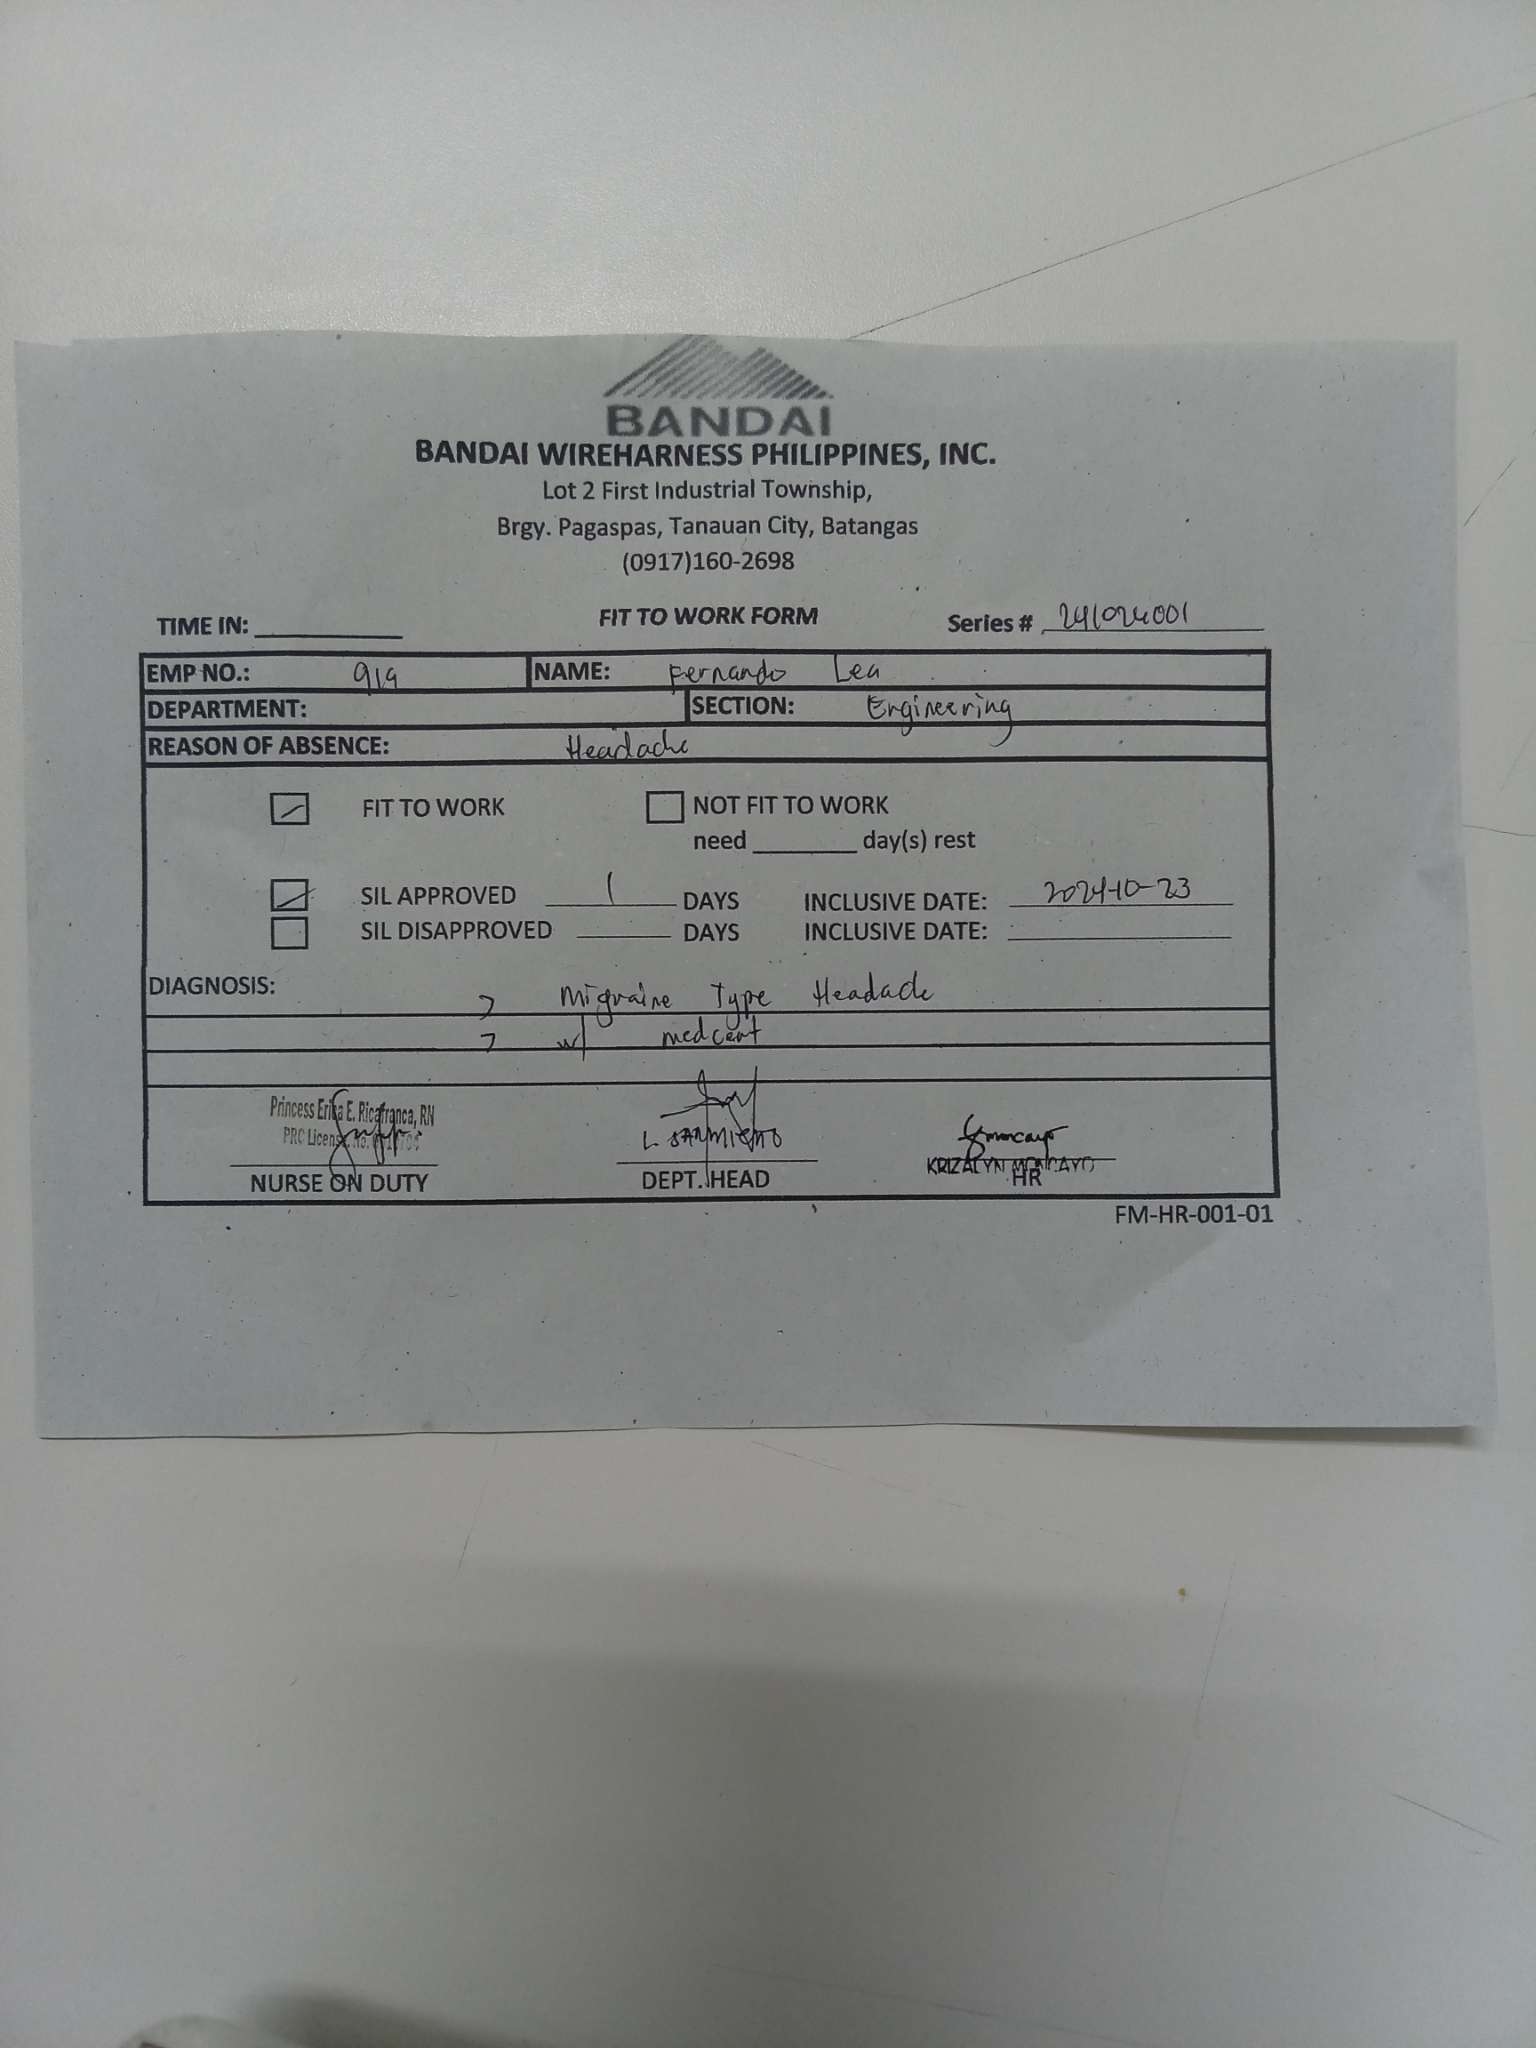 BANDAI
BANDAI WIREHARNESS PHILIPPINES, INC.
Lot 2 First Industrial Township,
Brgy. Pagaspas, Tanauan City, Batangas
(0917)160-2698
TIME IN: FIT TO WORK FORM Series # 241024001
EMP NO.: 919 NAME: Fernando Lea
DEPARTMENT: SECTION: Engineering
REASON OF ABSENCE: Headache
FIT TO WORK NOT FIT TO WORK
need day(s) rest
SIL APPROVED 1 DAYS INCLUSIVE DATE: 2024-10-23
SIL DISAPPROVED DAYS INCLUSIVE DATE:
DIAGNOSIS: > Migraine Type Headache
> w/ medcert
Princess Erika E. Ricafranca, RN
PRC License No.
L. SARMIENTO
KRIZALYN MONCAYO
NURSE ON DUTY DEPT. HEAD HR
FM-HR-001-01